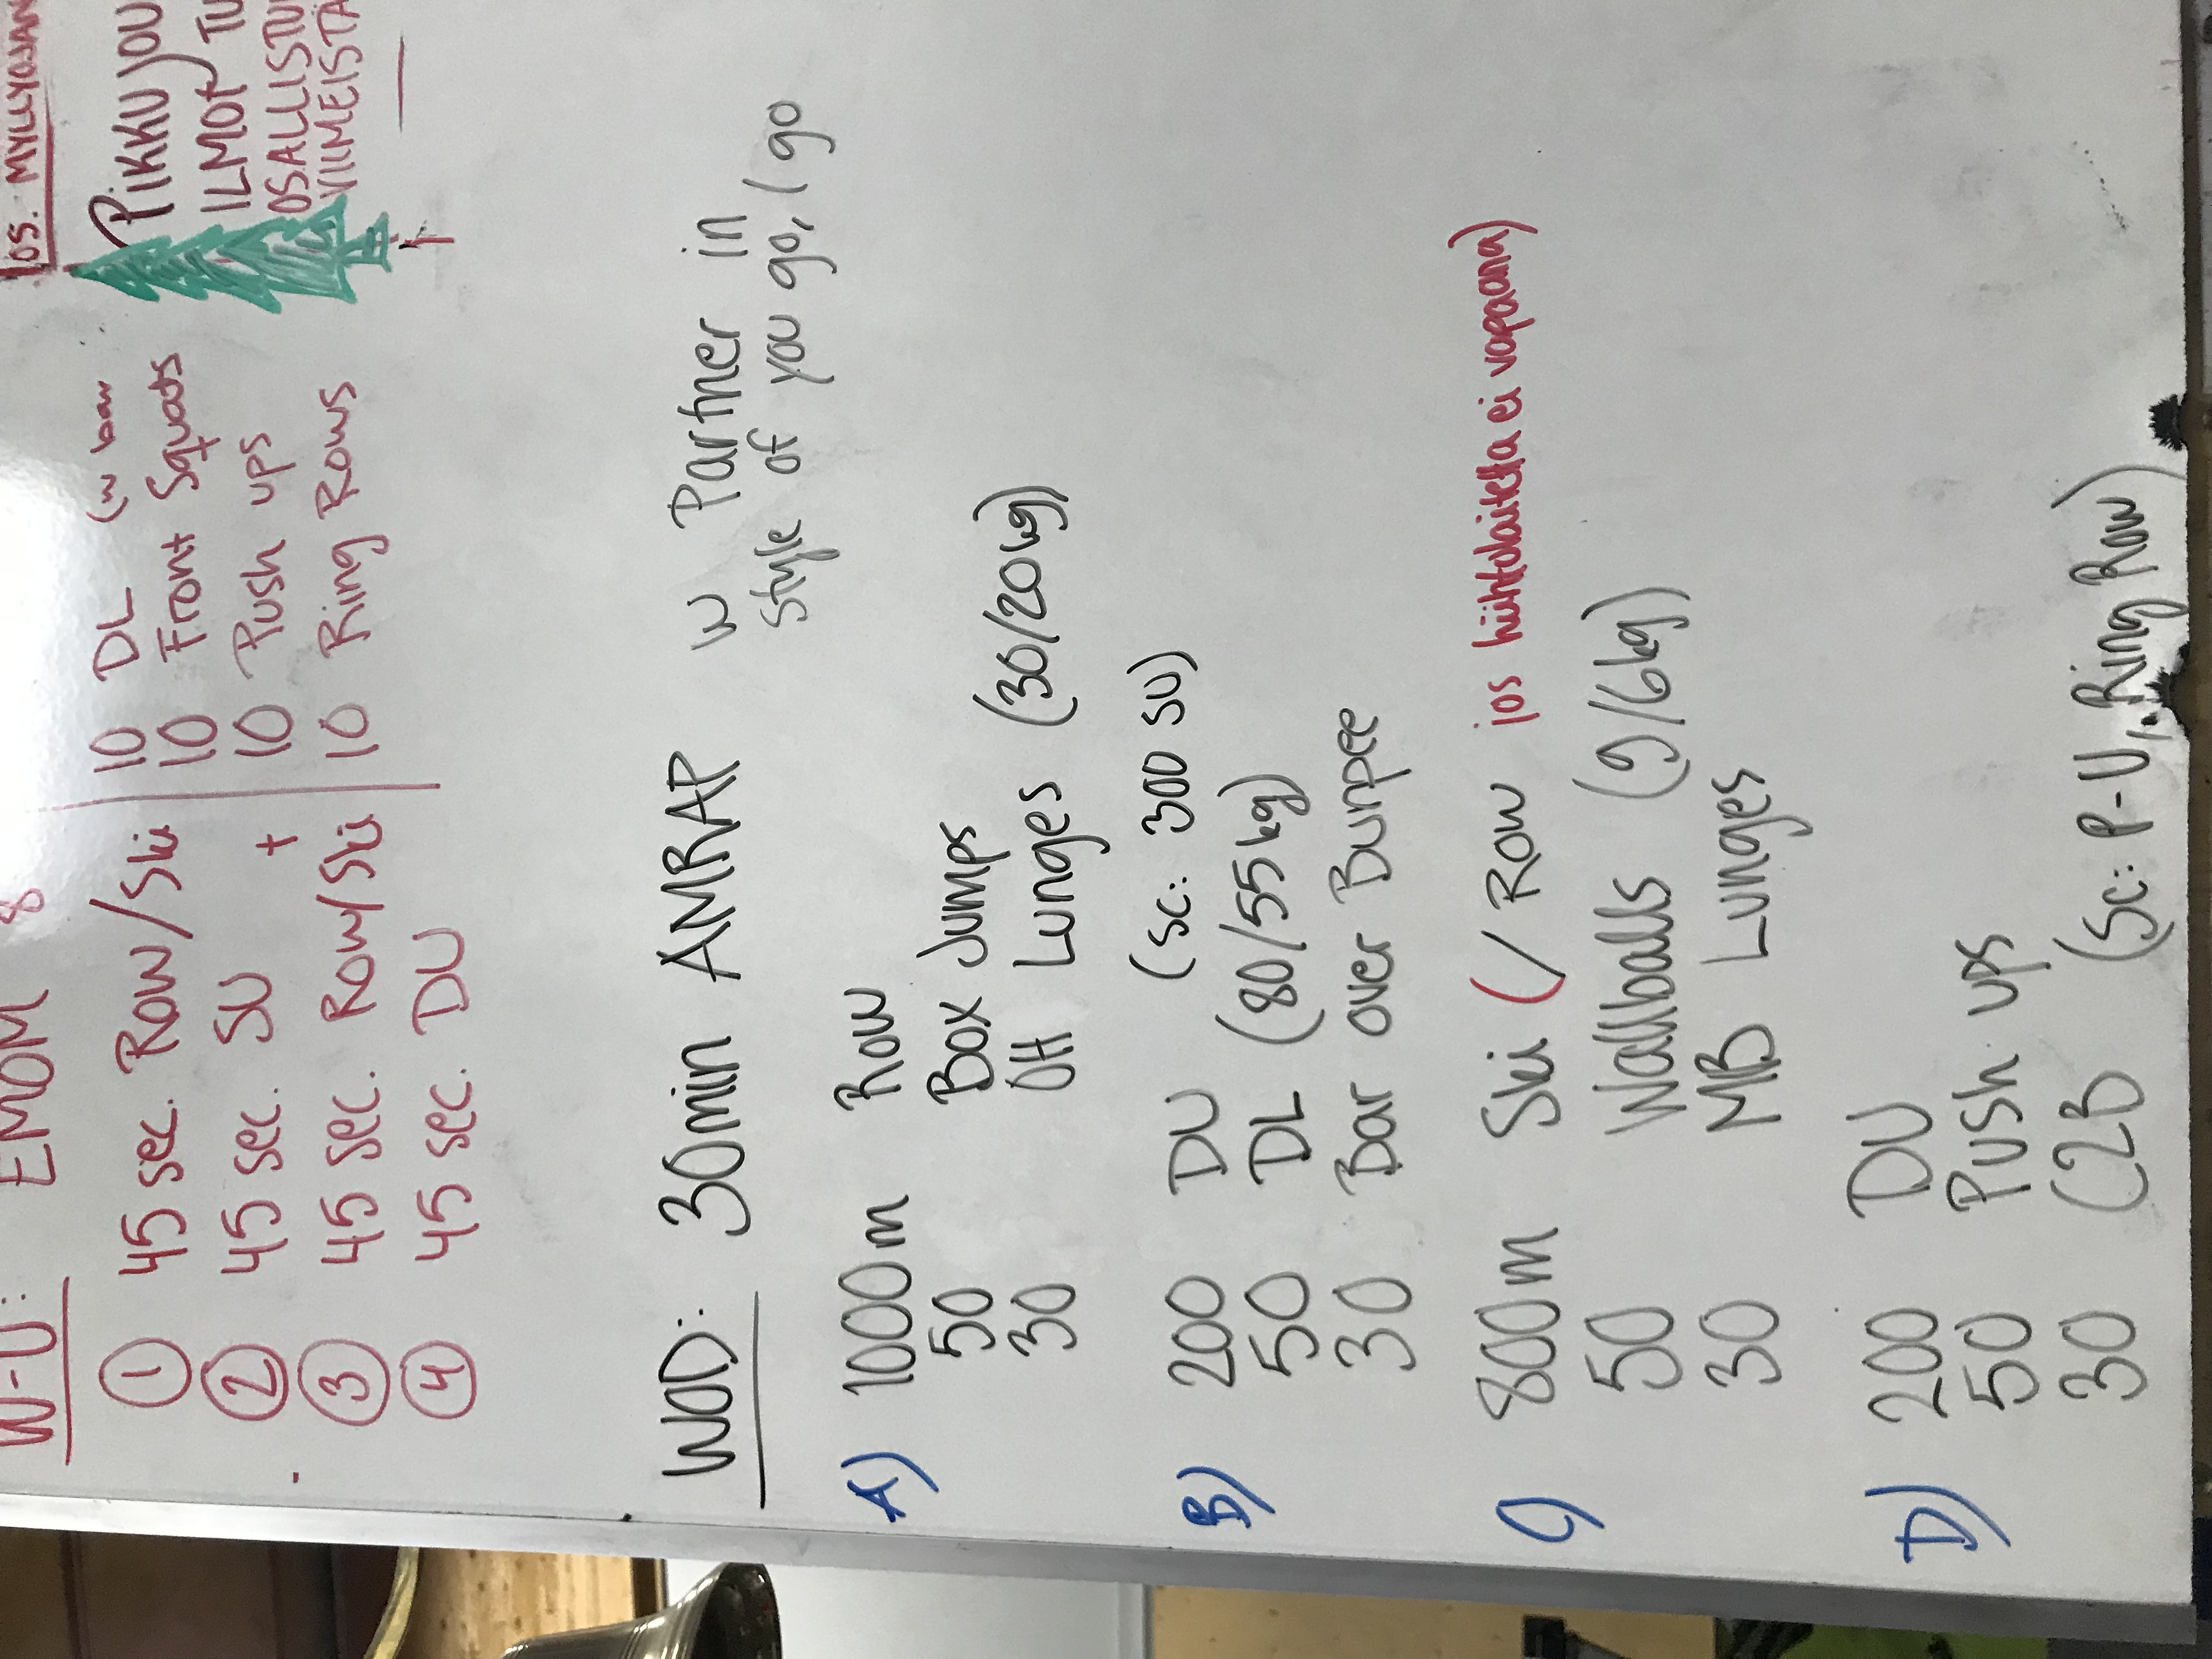 OS. MYLLYOJAN
PIKKUJOU
ILMOT TU
OSALLISTU
VIIMEISTÄ
W-U: EMOM 8
① 45 sec. Row/Ski 10 DL (w bar
10 Front Squats
② 45 sec. SU + 10 Push ups
③ 45 sec. Row/Ski 10 Ring Rows
④ 45 sec. DU
WOD: 30min AMRAP w Partner in
style of you go, I go
A) 1000m Row
50 Box Jumps
30 OH Lunges (30/20kg)
B) 200 DU (sc: 300 SU)
50 DL (80/55kg)
30 Bar over Burpee
C) 800m Ski (/ Row jos hiihtolaitetta ei vapaana)
50 Wallballs (9/6kg)
30 MB Lunges
D) 200 DU
50 Push ups
30 C2B (Sc: P-U, Ring Row)